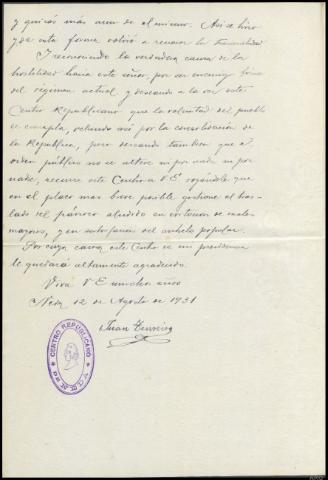 y quizás más aun de el mismo. Asi se hizo
y de esta forma volvió a renacer la tranquilidad
Y reconociendo la verdadera causa de la
hostilidad hacia este señor, por ser enemigo
del régimen actual y deseando a la vez este
Centro Republicano que la voluntad del pueblo
se cumpla, velando así por la consolidación de
la República, pero deseando tambien que el
orden público no se altere ni por nada ni por
nadie, recurre este Centro a V.E. rogándole que
en el plazo mas breve posible gestione el tras-
lado del párroco aludido en evitación de males
mayores, y en satisfacción del anhelo popular.
Por cuya causa este Centro es un presidente
le quedará altamente agradecido.
Viva V E muchos años
12 de Agosto de 1931
Juan
CENTRO REPUBLICANO